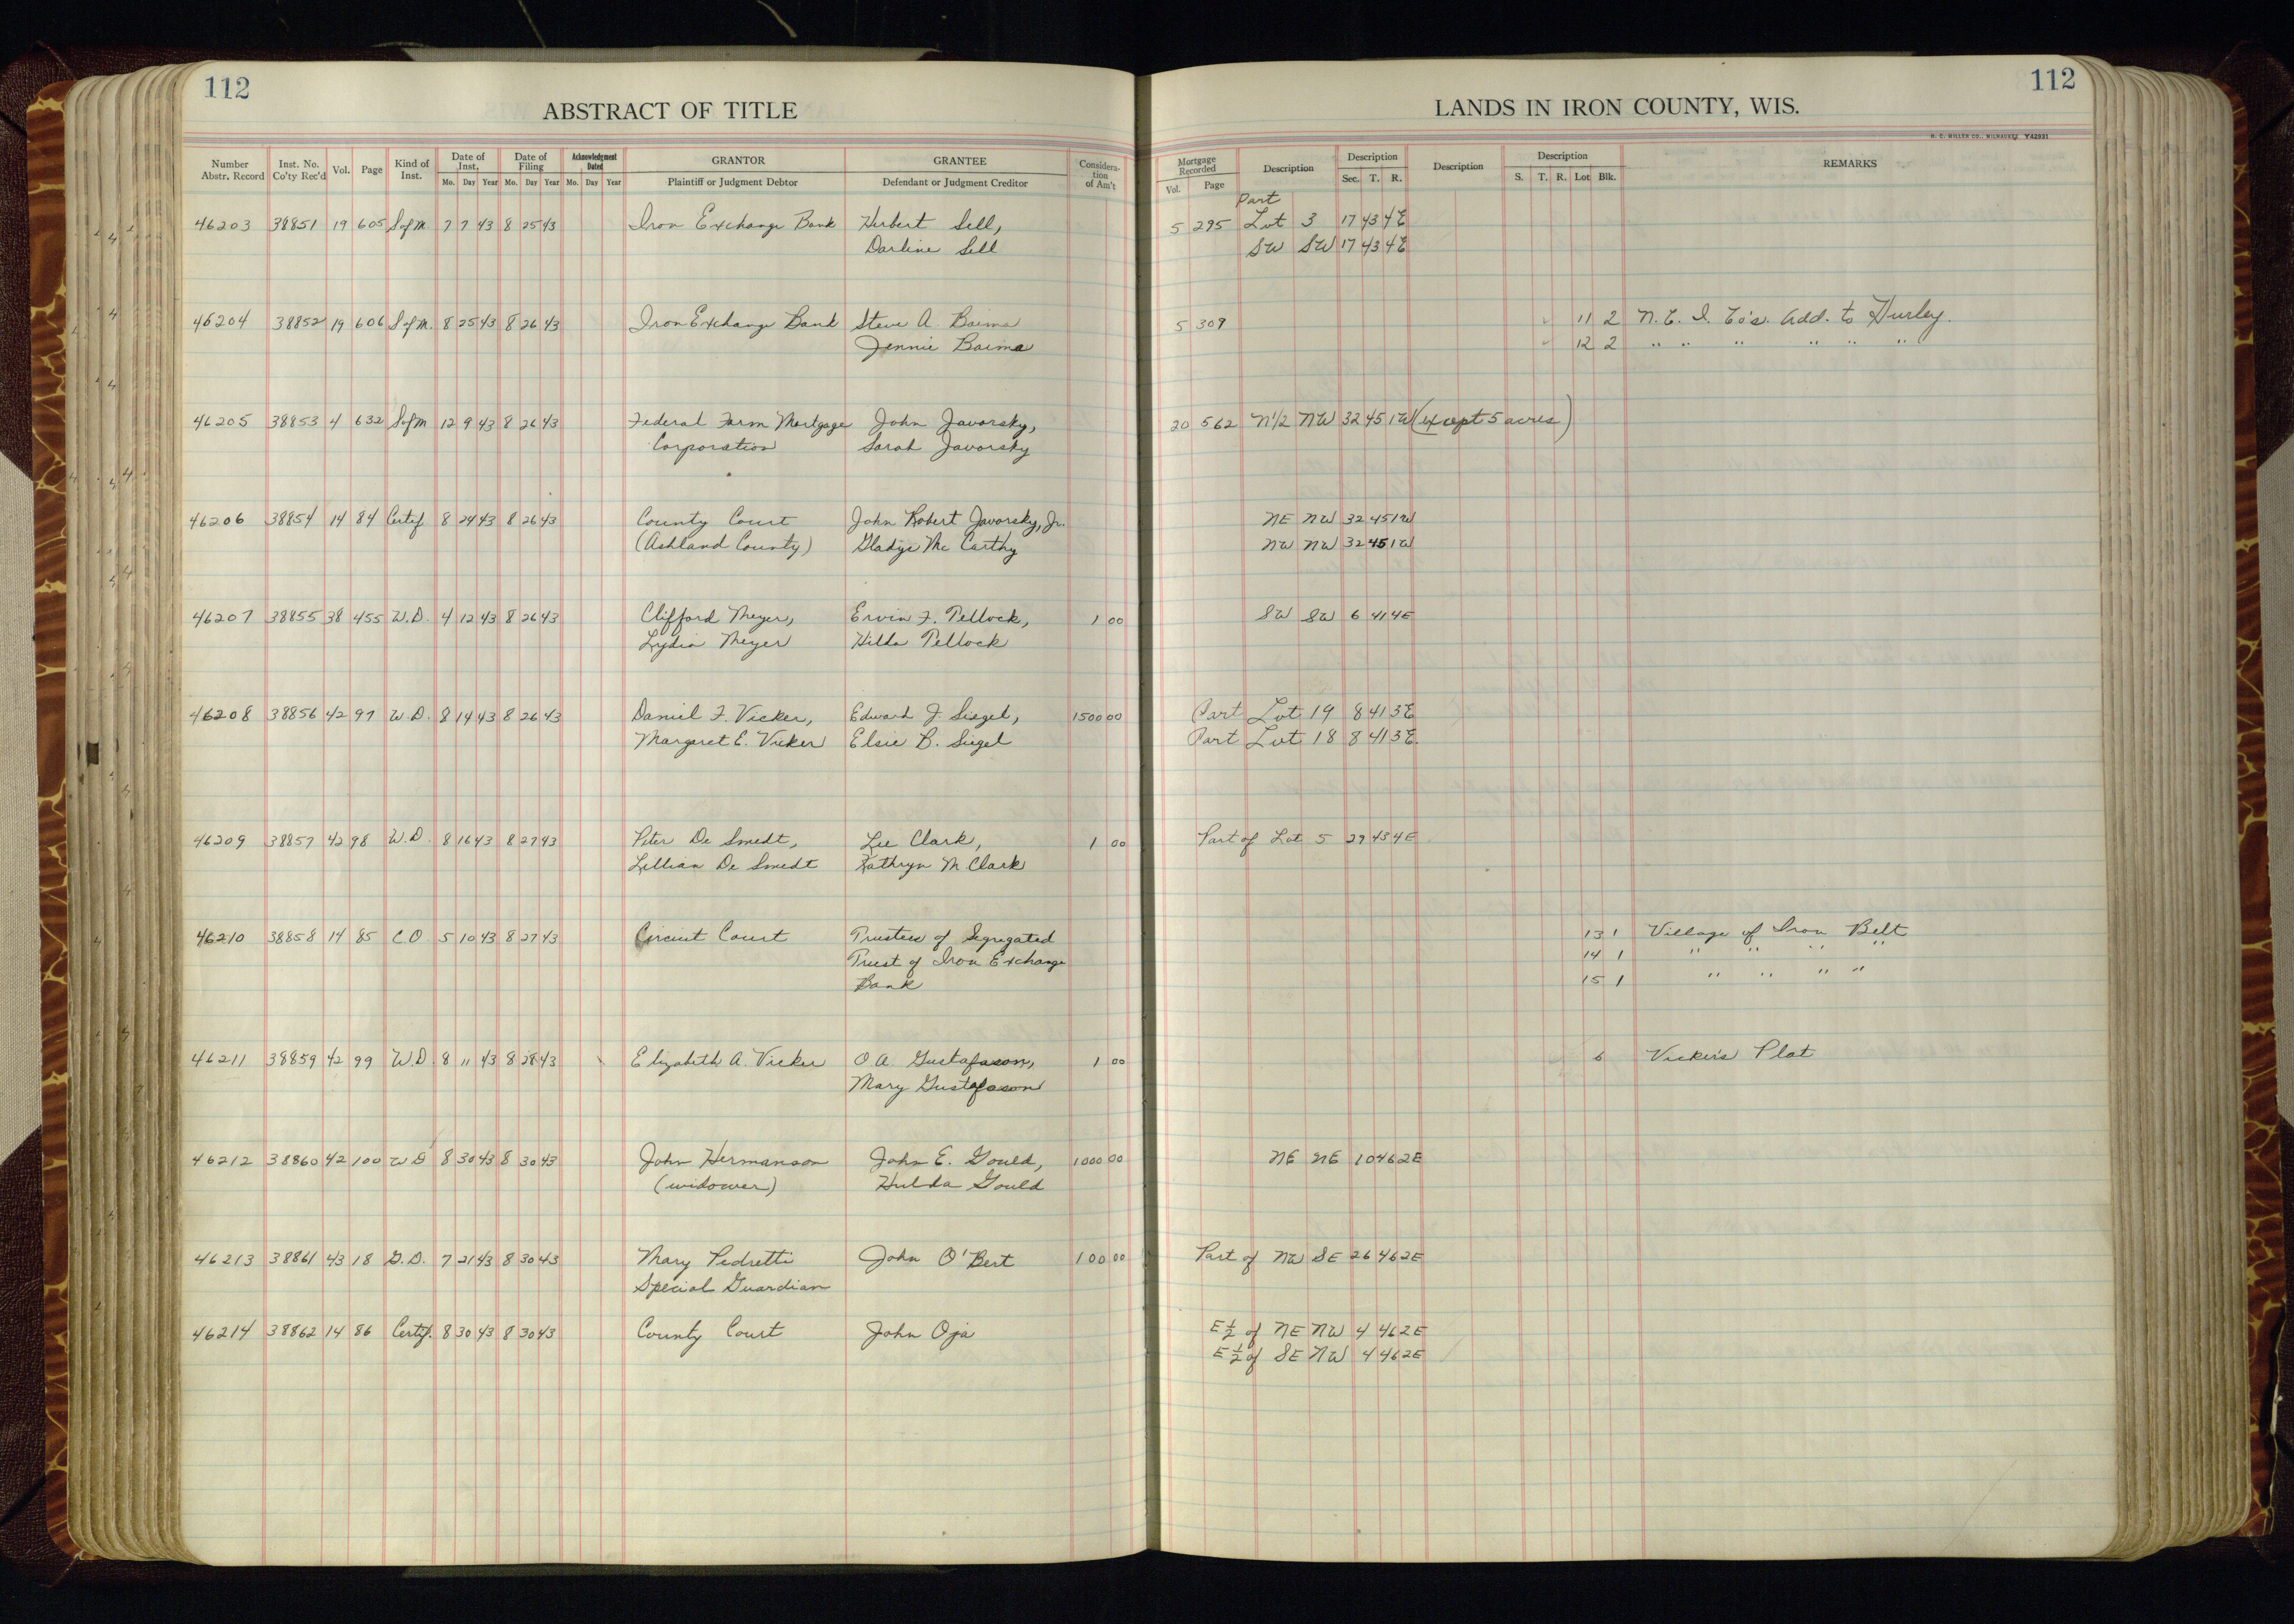 112
ABSTRACT OF TITLE
Number Abstr. Record | Inst. No. Co'ty Rec'd | Vol. | Page | Kind of Inst. | Date of Inst. Mo. Day Year | Date of Filing Mo. Day Year | Acknowledgment Dated Mo. Day Year | GRANTOR Plaintiff or Judgment Debtor | GRANTEE Defendant or Judgment Creditor | Considera-tion of Am't
46203 38851 19 605 S of M. 7 7 43 8 25 43 Iron Exchange Bank Herbert Sell,
Darline Sell
46204 38852 19 606 S of M. 8 25 43 8 26 43 Iron Exchange Bank Steve A. Baima
Jennie Baima
46205 38853 4 632 S of M 12 9 43 8 26 43 Federal Farm Mortgage John Javorsky,
Corporation Sarah Javorsky
46206 38854 14 84 Certif. 8 24 43 8 26 43 County Court John Robert Javorsky, Jr.
(Ashland County) Gladys Mc Carthy
46207 38855 38 455 W.D. 4 12 43 8 26 43 Clifford Meyer, Ervin F. Pellock, 1 00
Lydia Meyer Hilda Pellock
46208 38856 42 97 W.D. 8 14 43 8 26 43 Daniel F. Vicker, Edward J. Siegel, 1500 00
Margaret E. Vicker Elsie B. Siegel
46209 38857 42 98 W.D. 8 16 43 8 27 43 Peter De Smedt, Lee Clark, 1 00
Lillian De Smedt Kathryn M. Clark
46210 38858 14 85 C O 5 10 43 8 27 43 Circuit Court Trustees of Segregated
Trust of Iron Exchange
Bank
46211 38859 42 99 W.D. 8 11 43 8 28 43 Elizabeth A. Vicker O A Gustafason, 1 00
Mary Gustafason
46212 38860 42 100 W D 8 30 43 8 30 43 John Hermanson John E. Gould, 1000 00
(widower) Hulda Gould
46213 38861 43 18 G.D. 7 21 43 8 30 43 Mary Pedretti John O'Bert 100 00
Special Guardian
46214 38862 14 86 Certif. 8 30 43 8 30 43 County Court John Oja
112
LANDS IN IRON COUNTY, WIS.
H. C. MILLER CO., MILWAUKEE Y42931
Mortgage Recorded Vol. Page | Description | Description Sec. T. R. | Description | Description S. T. R. Lot Blk. | REMARKS
Part
5 295 Lot 3 17 43 4E
SW SW 17 43 4E
5 309 11 2 N. E. I. Co's. Add. to Hurley.
12 2 " " " " " "
20 562 N 1/2 NW 32 45 1W (except 5 acres)
NE NW 32 45 1W
NW NW 32 45 1W
SW SW 6 41 4E
Part Lot 19 8 41 3E
Part Lot 18 8 41 3E.
Part of Lot 5 29 43 4E
13 1 Village of Iron Belt
14 1 " " " "
15 1 " " " "
6 Vicker's Plat
NE NE 10 46 2E
Part of NW SE 26 46 2E
E 1/2 of NE NW 4 46 2E
E 1/2 of SE NW 4 46 2E